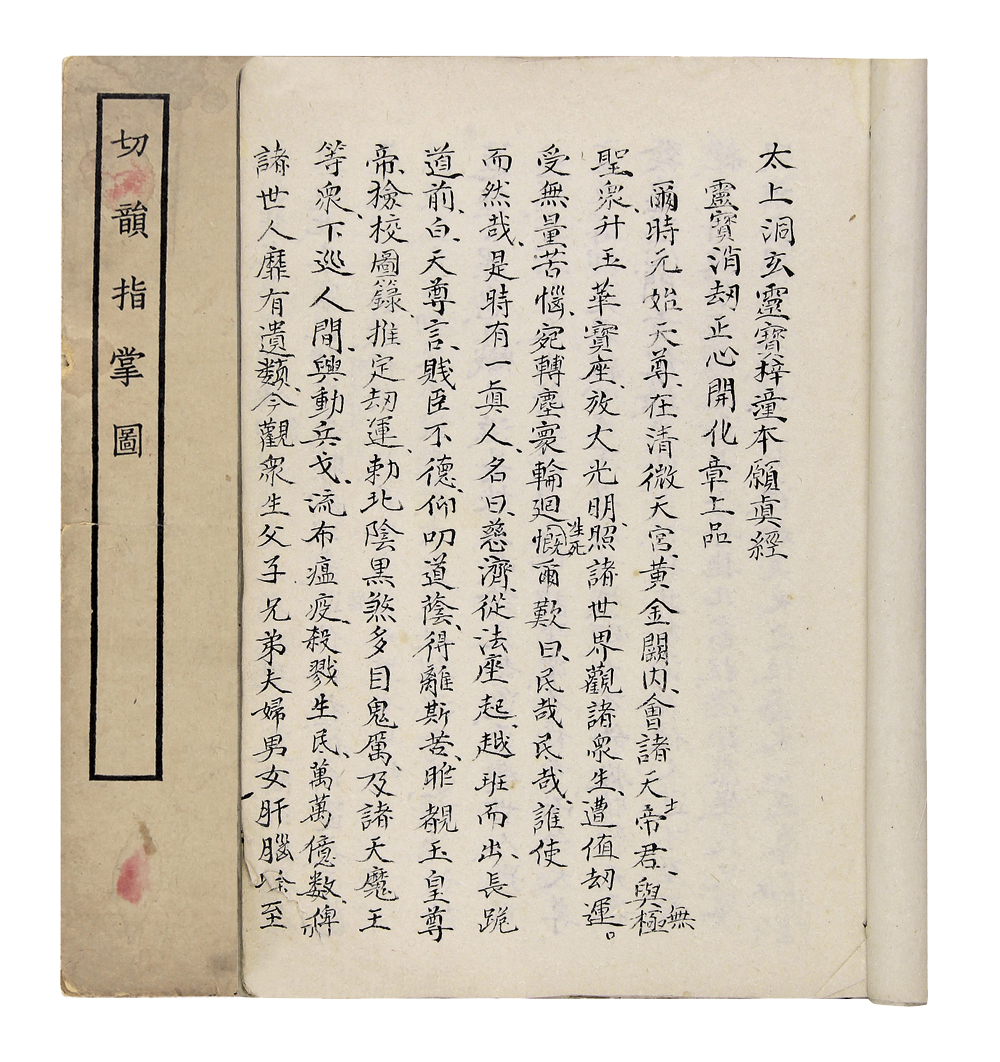 太上洞玄靈寶梓潼本願眞經
靈寶消刼正心開化章上品
爾時元始天尊、在清微天宮、黄金闕内、會諸天帝君、與極
士
無
聖衆、升玉華寶座、放大光明、照諸世界、觀諸衆生、遭值刼運。
受無量苦惱、宛轉塵寰、輪廻慨爾歎曰、民哉民哉、誰使
生死
而然哉、是時有一眞人、名曰、慈濟、從法座起、越班而出、長跪
道前、白天尊言、賤臣不德、仰叨道蔭、得離斯苦、昨覩玉皇尊
帝、撿校圖籙、推定刼運、勅北陰黑煞多目鬼厲、及諸天魔王
等衆、下巡人間、興動兵戈、流布瘟疫、殺戮生民、萬萬億數、俾
諸世人靡有遺類、今觀衆生父子兄弟夫婦男女肝腦塗至
切韻指掌圖